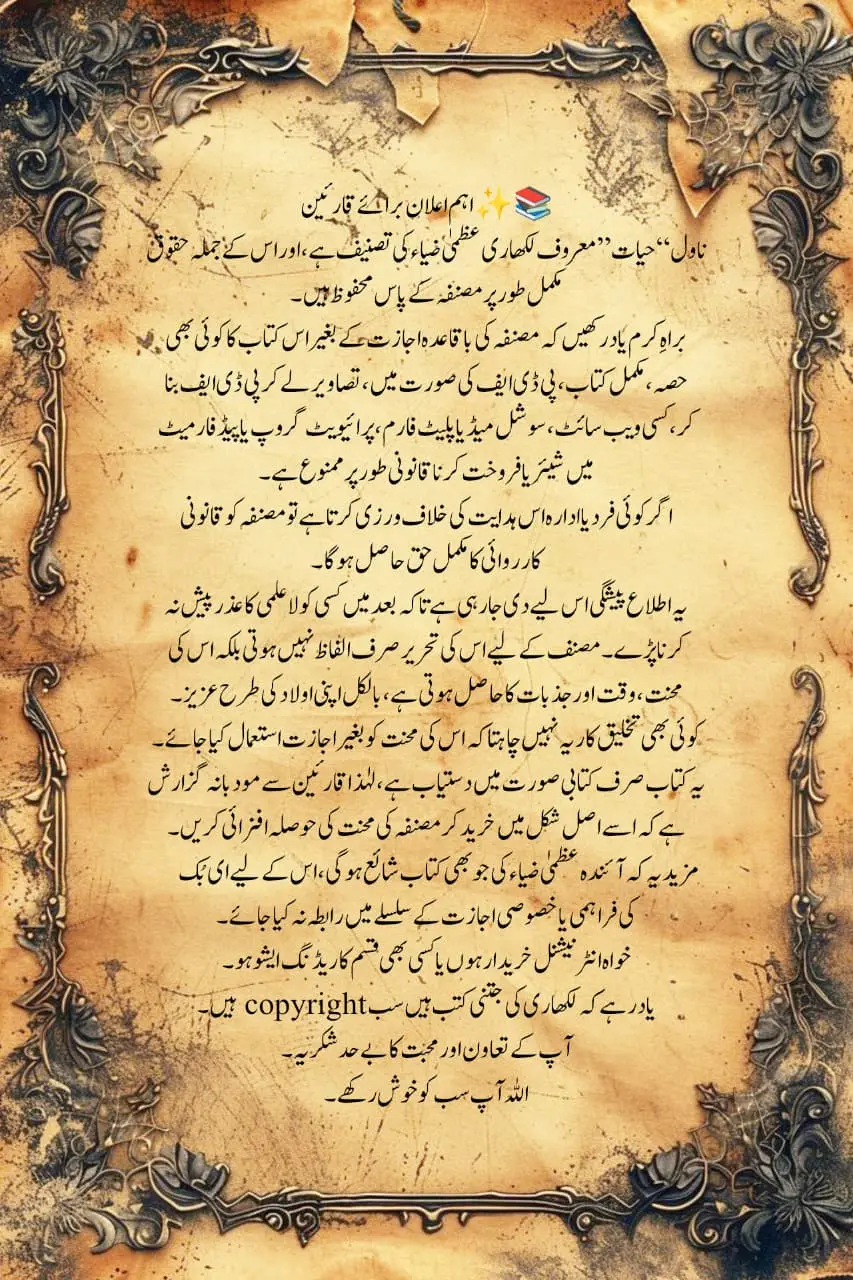 📚✨ اہم اعلان برائے قارئین
ناول “حیات” معروف لکھاری عظمیٰ ضیاء کی تصنیف ہے، اور اس کے جملہ حقوق
مکمل طور پر مصنفہ کے پاس محفوظ ہیں۔
براہِ کرم یاد رکھیں کہ مصنفہ کی باقاعدہ اجازت کے بغیر اس کتاب کا کوئی بھی
حصہ، مکمل کتاب، پی ڈی ایف کی صورت میں، تصاویر لے کر پی ڈی ایف بنا
کر، کسی ویب سائٹ، سوشل میڈیا پلیٹ فارم، پرائیویٹ گروپ یا پیڈ فارمیٹ
میں شیئر یا فروخت کرنا قانونی طور پر ممنوع ہے۔
اگر کوئی فرد یا ادارہ اس ہدایت کی خلاف ورزی کرتا ہے تو مصنفہ کو قانونی
کارروائی کا مکمل حق حاصل ہوگا۔
یہ اطلاع پیشگی اس لیے دی جا رہی ہے تاکہ بعد میں کسی کو لاعلمی کا عذر پیش نہ
کرنا پڑے۔ مصنف کے لیے اس کی تحریر صرف الفاظ نہیں ہوتی بلکہ اس کی
محنت، وقت اور جذبات کا حاصل ہوتی ہے، بالکل اپنی اولاد کی طرح عزیز۔
کوئی بھی تخلیق کار یہ نہیں چاہتا کہ اس کی محنت کو بغیر اجازت استعمال کیا جائے۔
یہ کتاب صرف کتابی صورت میں دستیاب ہے، لہٰذا قارئین سے مودبانہ گزارش
ہے کہ اسے اصل شکل میں خرید کر مصنفہ کی محنت کی حوصلہ افزائی کریں۔
مزید یہ کہ آئندہ عظمیٰ ضیاء کی جو بھی کتاب شائع ہوگی، اس کے لیے ای بُک
کی فراہمی یا خصوصی اجازت کے سلسلے میں رابطہ نہ کیا جائے۔
خواہ انٹرنیشنل خریدار ہوں یا کسی بھی قسم کا ریڈنگ ایشو ہو۔
یاد رہے کہ لکھاری کی جتنی کتب ہیں سب copyright ہیں۔
آپ کے تعاون اور محبت کا بے حد شکریہ۔
اللہ آپ سب کو خوش رکھے۔